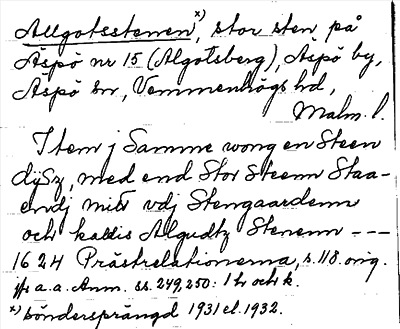 Allgotsstenen x), stor sten på
Äspö nr 15 (Algotsberg), Äspö by,
Äspö sn, Vemmenhögs hd,
Malm. l.
Item j Samme wong en Steen
dÿsz, med end Stor Steenn Staa-
endj mitt vdj Stengaardenn
och kaldis Algudtz Stenenn ---
1624 Prästrelationerna, s. 118. orig.
jfr a.a. Anm. ss. 249, 250: 1 h och k.
x) söndersprängd 1931 el. 1932.